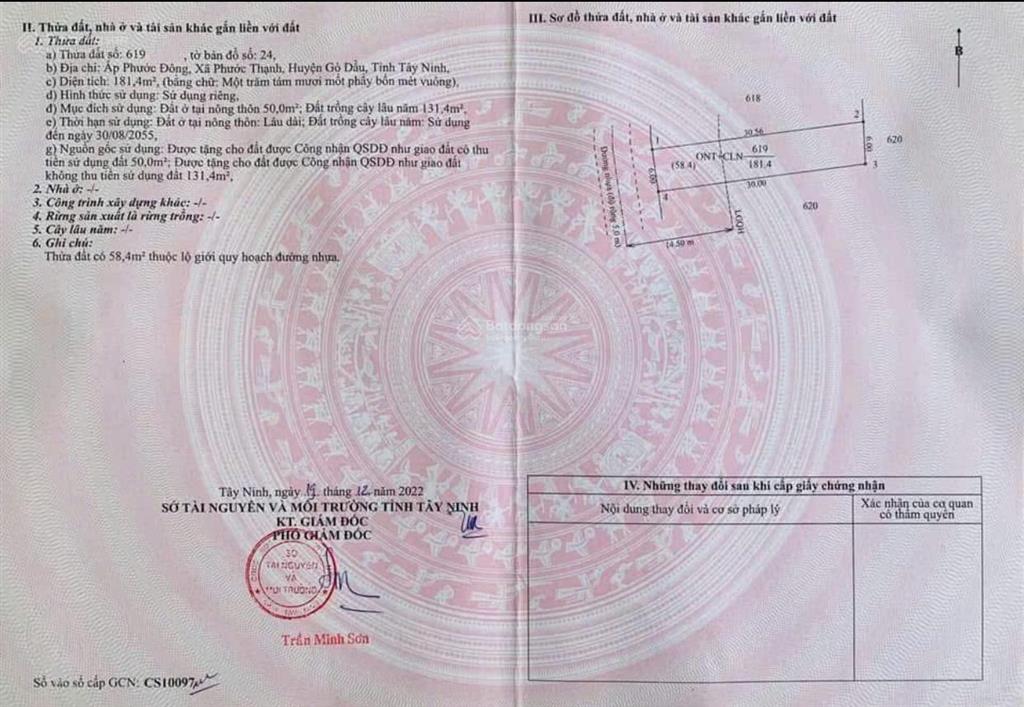 II. Thửa đất, nhà ở và tài sản khác gắn liền với đất
1. Thửa đất:
a) Thửa đất số: 619 , tờ bản đồ số: 24,
b) Địa chỉ: Ấp Phước Đông, Xã Phước Thạnh, Huyện Gò Dầu, Tỉnh Tây Ninh,
c) Diện tích: 181,4m², (bằng chữ: Một trăm tám mươi mốt phẩy bốn mét vuông),
d) Hình thức sử dụng: Sử dụng riêng,
đ) Mục đích sử dụng: Đất ở tại nông thôn 50,0m²; Đất trồng cây lâu năm 131,4m²,
e) Thời hạn sử dụng: Đất ở tại nông thôn: Lâu dài; Đất trồng cây lâu năm: Sử dụng
đến ngày 30/08/2055,
g) Nguồn gốc sử dụng: Được tặng cho đất được Công nhận QSDĐ như giao đất có thu
tiền sử dụng đất 50,0m²; Được tặng cho đất được Công nhận QSDĐ như giao đất
không thu tiền sử dụng đất 131,4m²,
2. Nhà ở: -/-
3. Công trình xây dựng khác: -/-
4. Rừng sản xuất là rừng trồng: -/-
5. Cây lâu năm: -/-
6. Ghi chú:
Thửa đất có 58,4m² thuộc lộ giới quy hoạch đường nhựa.
Tây Ninh, ngày tháng 12 năm 2022
SỞ TÀI NGUYÊN VÀ MÔI TRƯỜNG TỈNH TÂY NINH
KT. GIÁM ĐỐC
PHÓ GIÁM ĐỐC
SỞ
TÀI NGUYÊN
VÀ
MÔI TRƯỜNG
Trần Minh Sơn
Số vào sổ cấp GCN: CS10097
III. Sơ đồ thửa đất, nhà ở và tài sản khác gắn liền với đất
B
618
30.56
2
1
6.00
620
ONT+CLN
619
181.4
(58.4)
3
6.00
30.00
4
620
Đường nhựa (lộ rộng 5.0 m)
LGQH
14.50 m
Batdongsan
IV. Những thay đổi sau khi cấp giấy chứng nhận
Nội dung thay đổi và cơ sở pháp lý
Xác nhận của cơ quan
có thẩm quyền